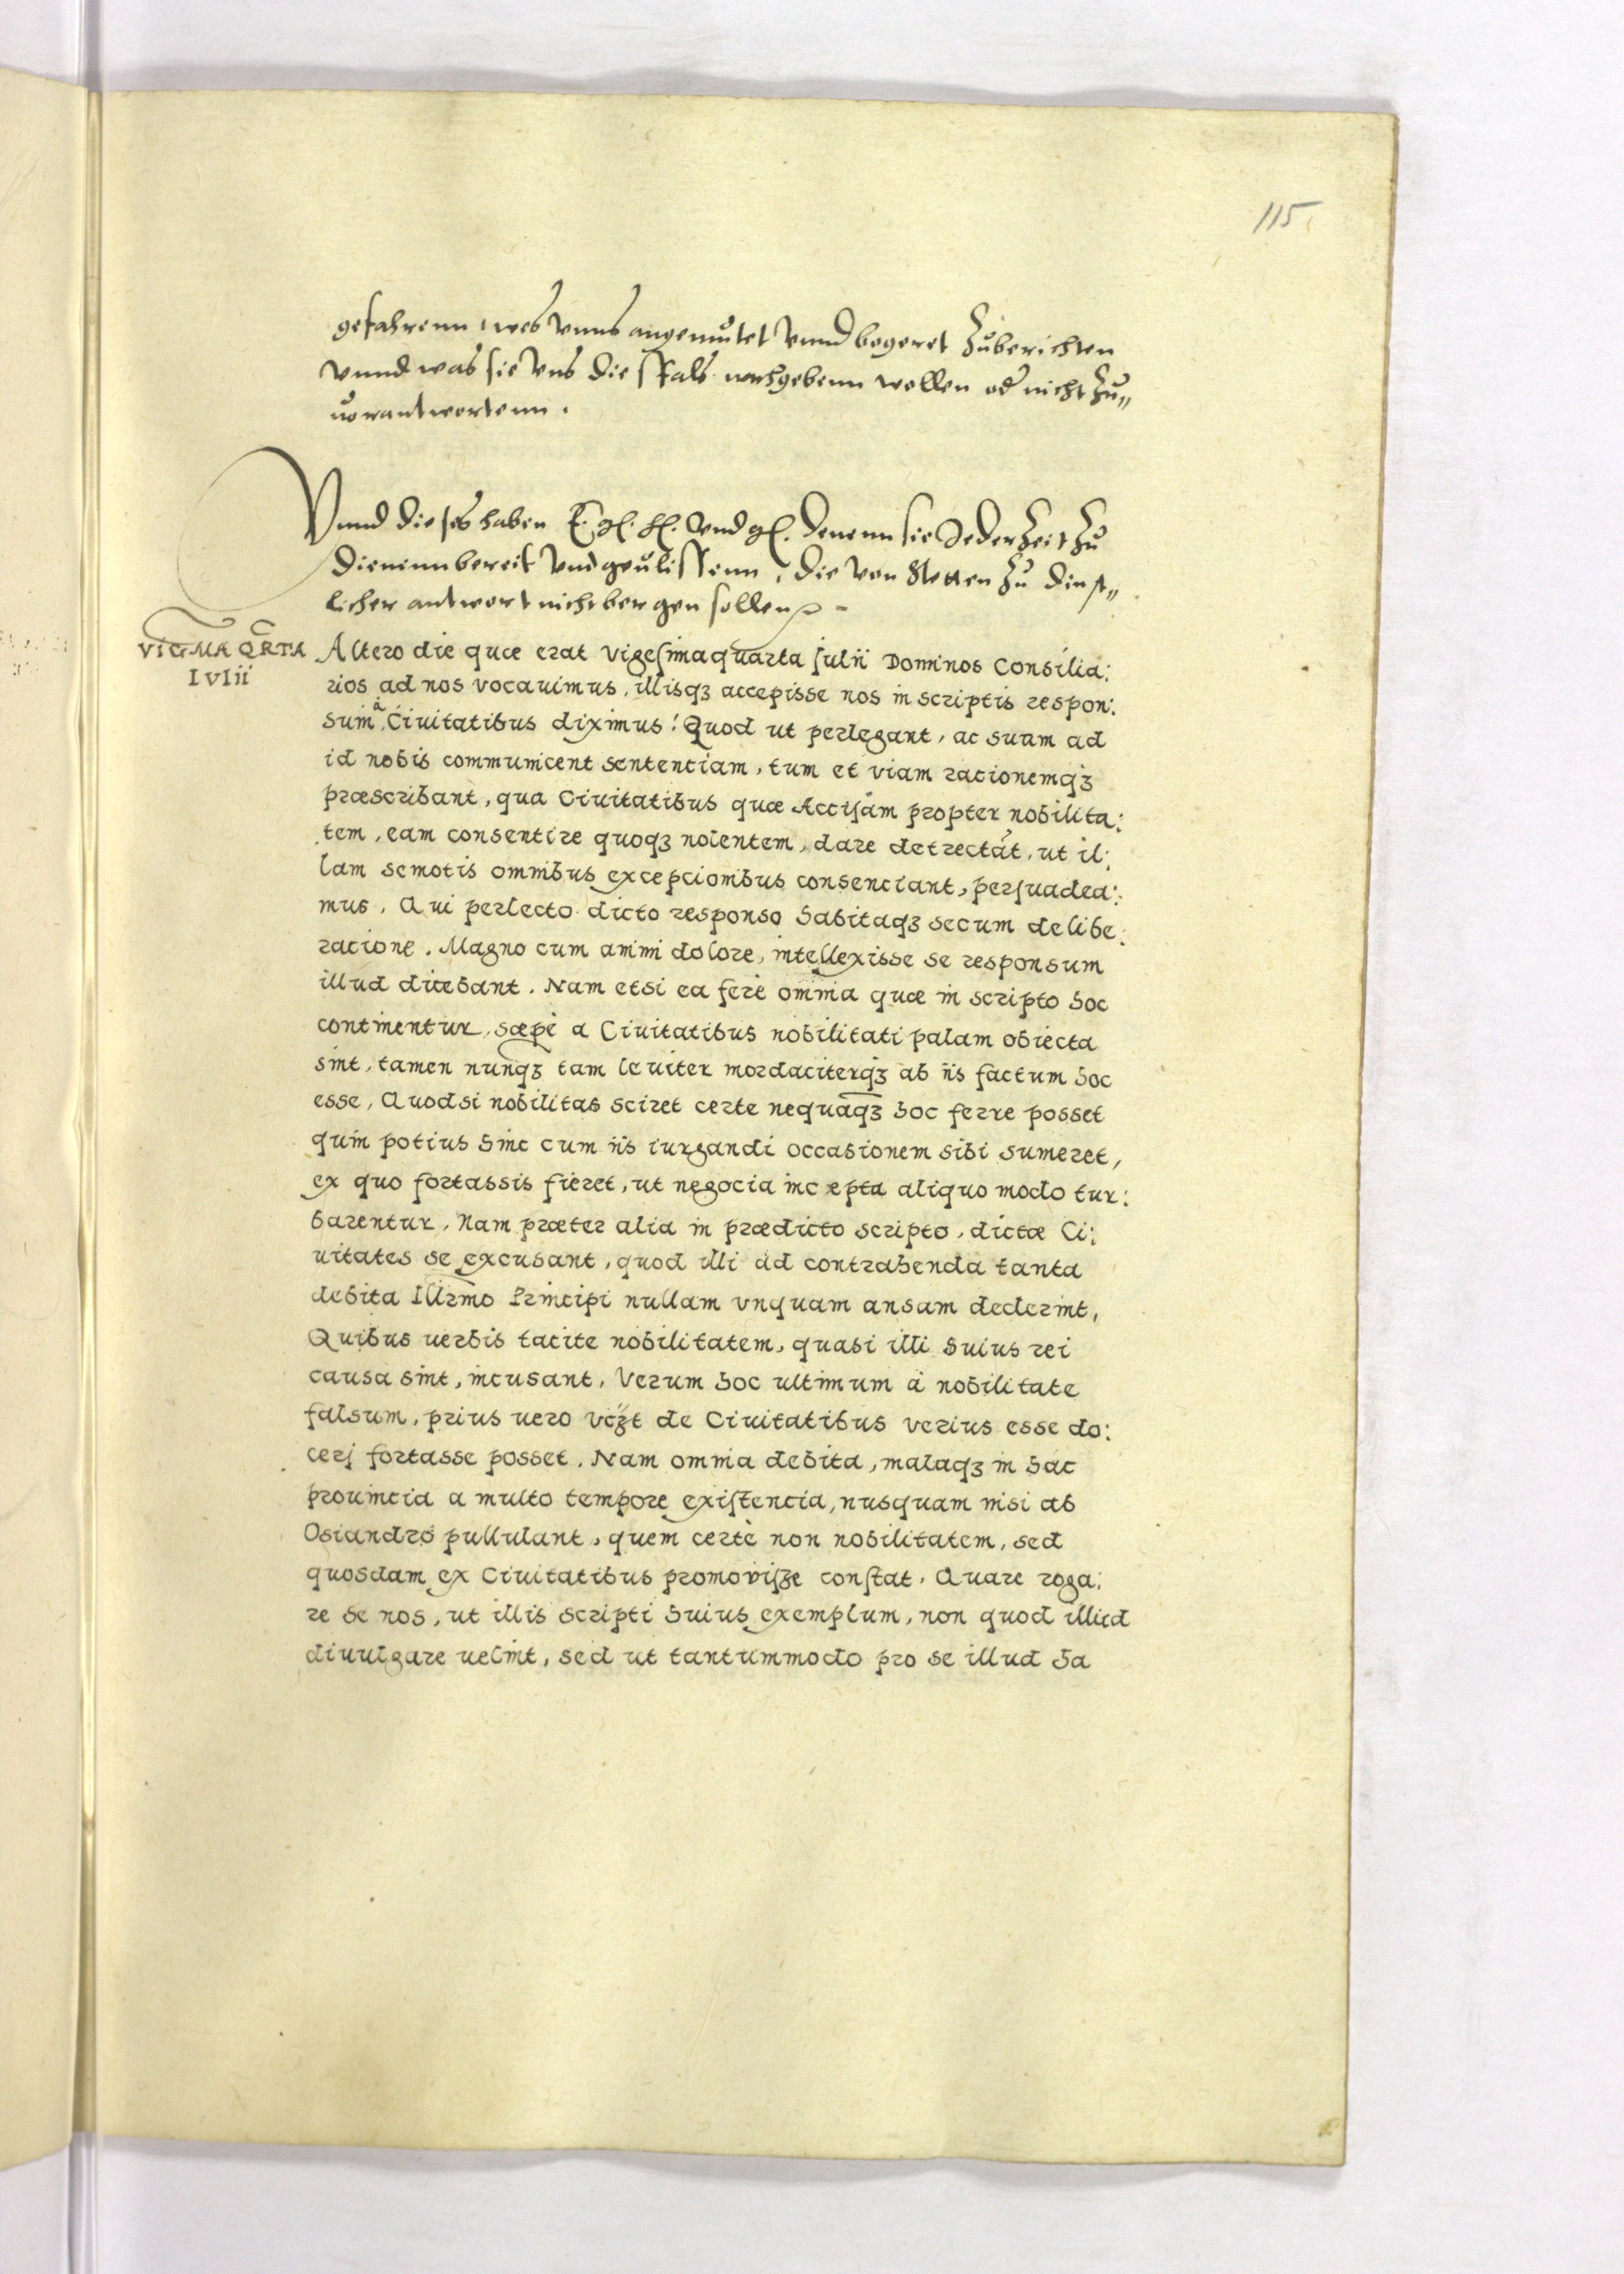 115
gefahrenn, wes vnns angemutet vnnd begeret Zuberichten
vnnd was sie vns diessfals nachgebenn wollen od nicht Zu„
uorantwortenn.
Vnnd dieses haben E. gl. hl. vnd gl. denenn sie Jederzeit Zu
dienenn bereit vnd geulissenn, die von Stetten Zu dinst„
licher antwort nicht bergen sollen
VIGMA QRTA
IVlii
Altero die quæ erat vigesimaquarta Julii Dominos Consilia:
rios ad nos vocauimus, illisqȝ accepisse nos in scriptis respon:
sum à Ciuitatibus diximus: Quod ut perlegant, ac suam ad
id nobis communicent sententiam, tum et viam racionemqȝ
præscribant, qua Ciuitatibus quæ Accisam propter nobilita:
tem, eam consentire quoqȝ nolentem, dare detrectãt, ut il:
lam semotis omnibus excepcionibus consenciant, persuadea:
mus. Qui perlecto dicto responso habitaqȝ secum delibe:
racione. Magno cum animi dolore, intellexisse se responsum
illud dicebant. Nam etsi ea ferè omnia quæ in scripto hoc
continentur, sæpè a Ciuitatibus nobilitati palam obiecta
sint, tamen nunqȝ tam leuiter mordaciterqȝ ab iis factum hoc
esse, Quodsi nobilitas sciret certe nequaqȝ hoc ferre posset
quin potius hinc cum iis iurgandi occasionem sibi sumeret,
ex quo fortassis fieret, ut negocia incæpta aliquo modo tur:
barentur. Nam præter alia in prædicto scripto, dictæ Ci:
uitates se excusant, quod illi ad contrahenda tanta
debita Illrmo Principi nullam vnquam ansam dederint,
Quibus uerbis tacite nobilitatem, quasi illi huius rei
causa sint, incusant. Verum hoc ultimum à nobilitate
falsum, prius uero de Ciuitatibus verius esse do:
cerj fortasse posset. Nam omnia debita, malaqȝ in hac
prouincia a multo tempore existencia, nusquam nisi ab
Osiandro pullulant, quem certè non nobilitatem, sed
quosdam ex Ciuitatibus promovisse constat. Quare roga:
re se nos, ut illis scripti huius exemplum, non quod illud
diuulgare uelint, sed ut tantummodo pro se illud ha